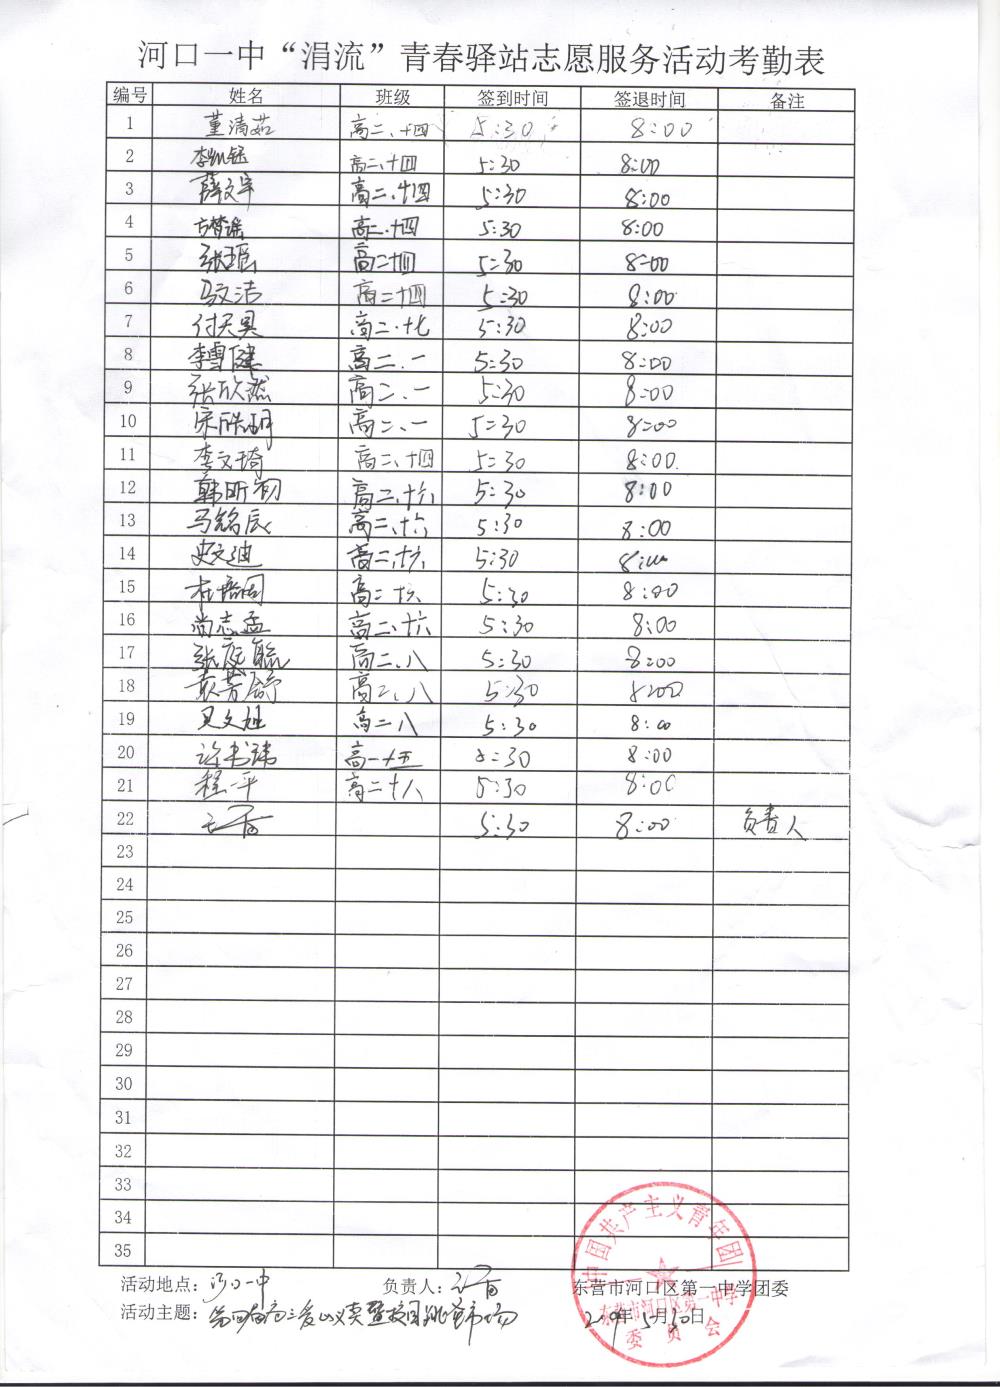 河口一中“涓流”青春驿站志愿服务活动考勤表
编号 姓名 班级 签到时间 签退时间 备注
1 董清茹 高二、十四 5:30 8:00
2 李凯钰 高二、十四 5:30 8:00
3 薛文宇 高二、十四 5:30 8:00
4 高二、十四 5:30 8:00
5 张瑶 高二十四 5:30 8:00
6 马文洁 高二十四 5:30 8:00
7 付天昊 高二、十七 5:30 8:00
8 李雪健 高二、一 5:30 8:00
9 张欣然 高二、一 5:30 8:00
10 宋欣玥 高二、一 5:30 8:00
11 李文琦 高二、十四 5:30 8:00
12 韩昕 高二、十六 5:30 8:00
13 马铭辰 高二、十六 5:30 8:00
14 史文迪 高二、十六 5:30 8:00
15 杜 高二十六 5:30 8:00
16 尚志孟 高二、十六 5:30 8:00
17 张庭毓 高二、八 5:30 8:00
18 袁芳舒 高二、八 5:30 8:00
19 吴文旭 高二八 5:30 8:00
20 许书玮 高一十五 5:30 8:00
21 程一平 高二十八 5:30 8:00
22 5:30 8:00 负责人
23
24
25
26
27
28
29
30
31
32
33
34
35
活动地点：河口一中 负责人： 东营市河口区第一中学团委
活动主题：第四届高三爱心义卖暨校园跳蚤市场 2019年5月30日
中国共产主义青年团
东营市河口区第一中学
委员会